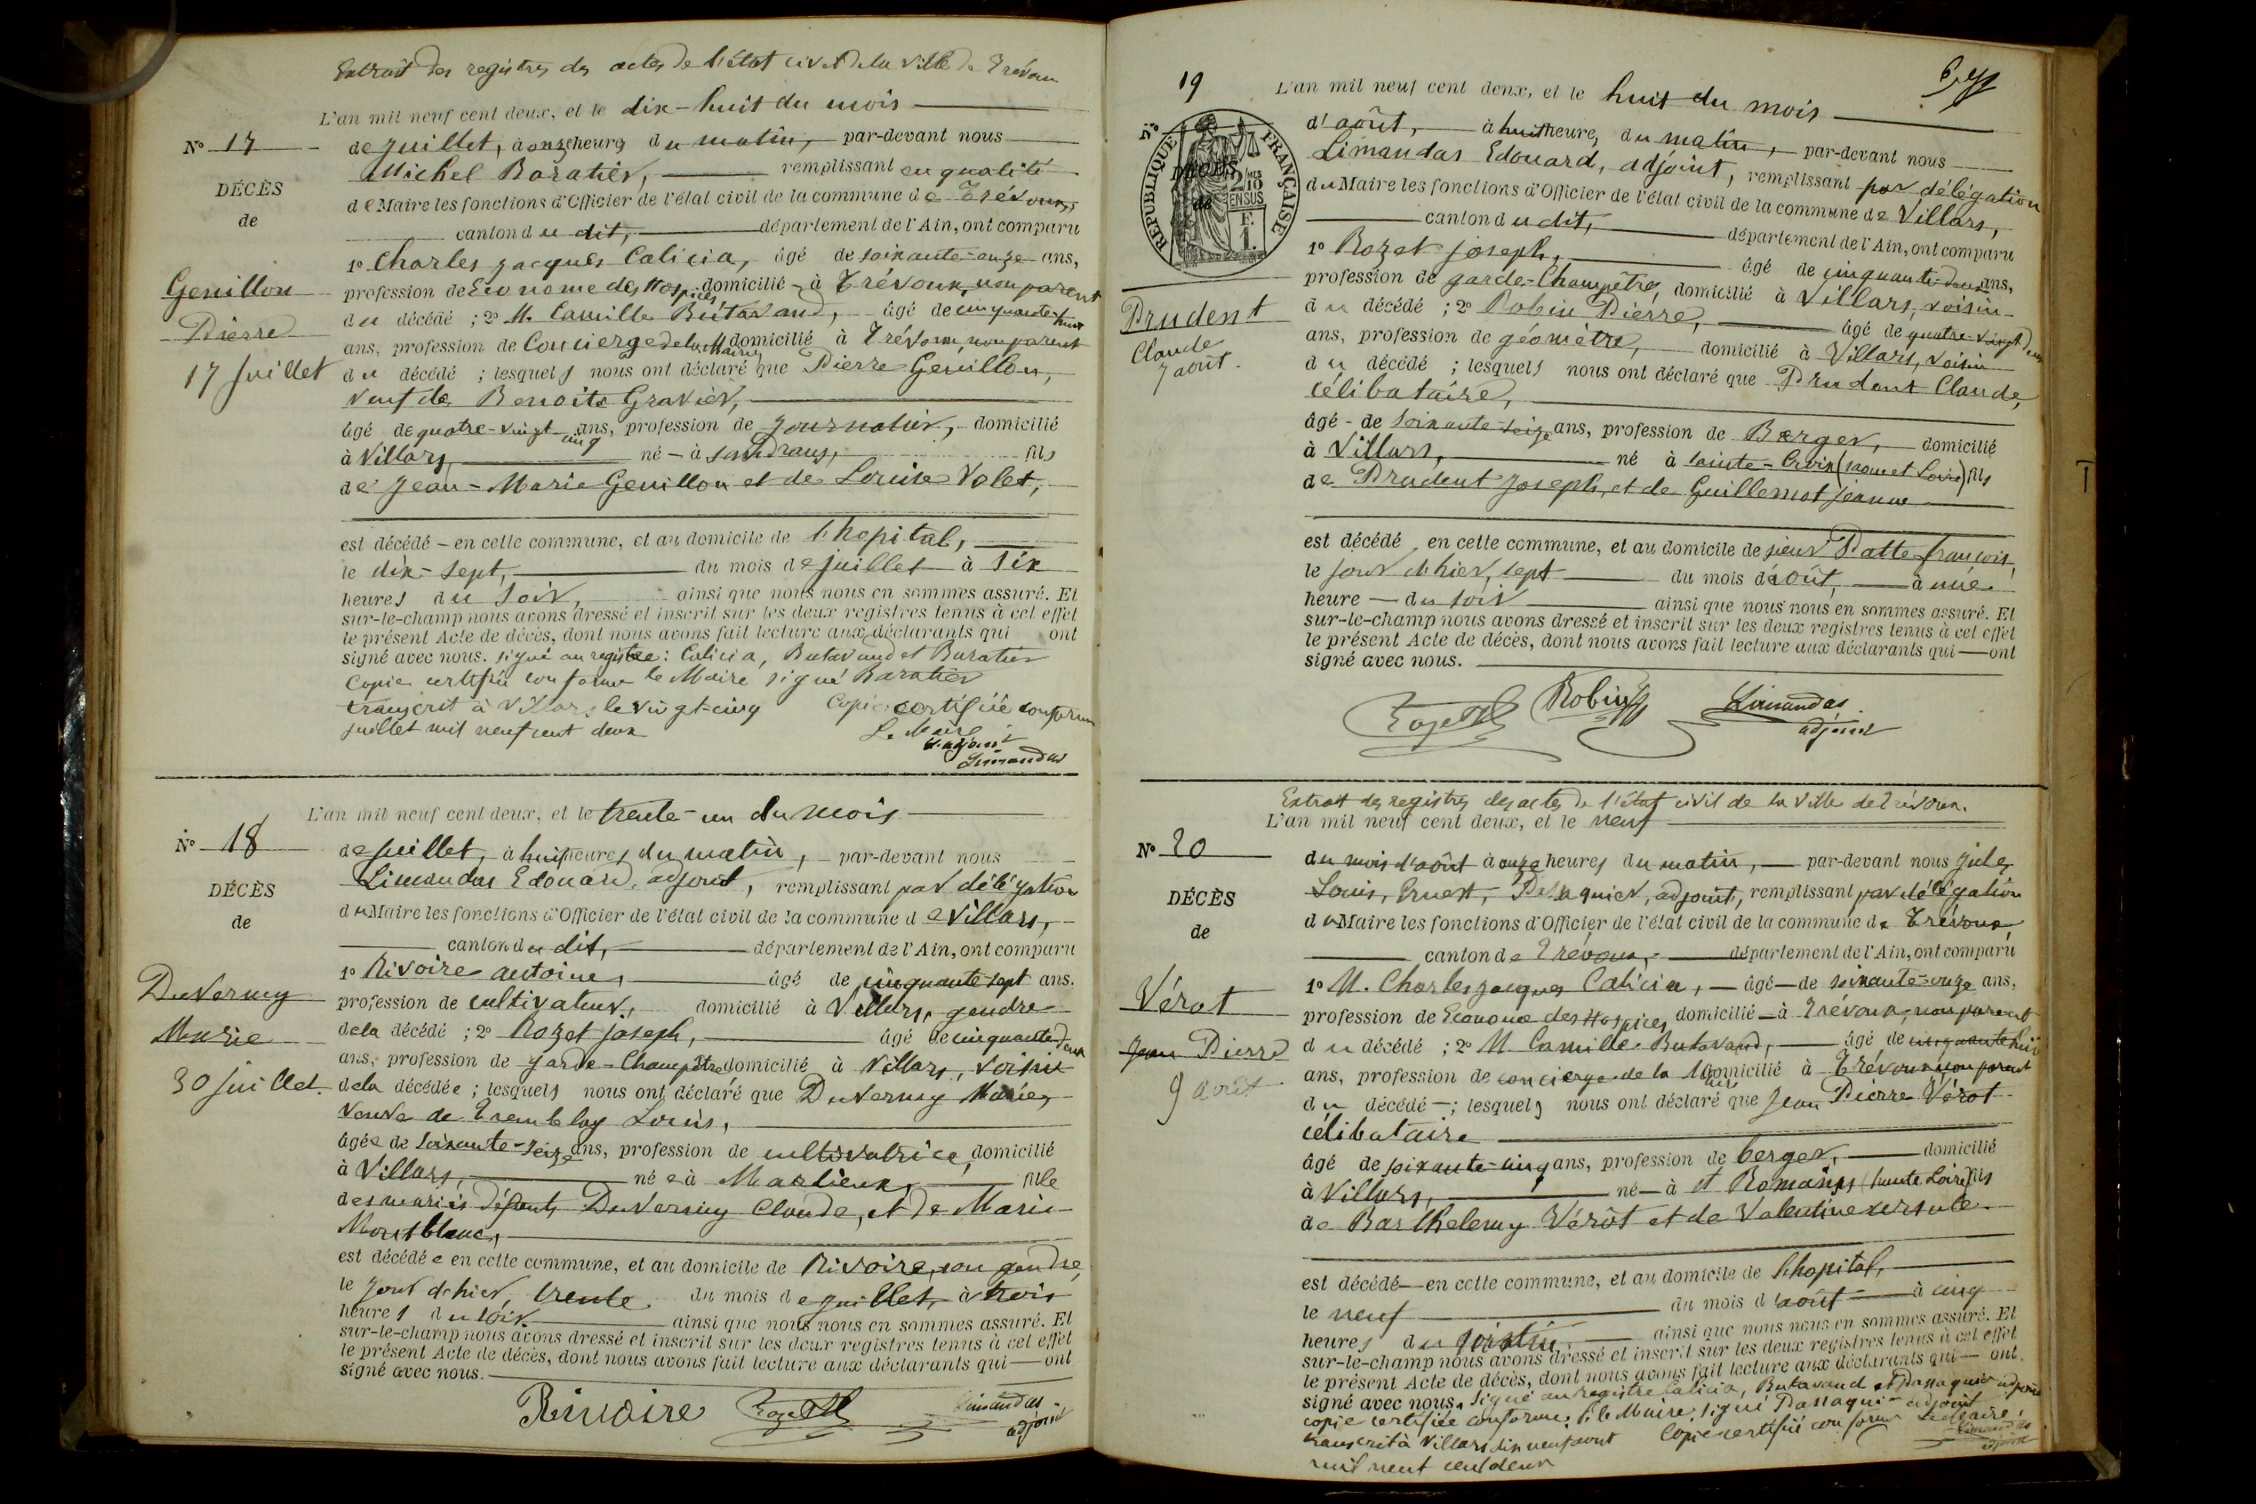 Extrait des registres des actes de l'état civil de la ville de Trévoux
L'an mil neuf cent deux, et le dix-huit du mois
No 17
de juillet, à onze heures du matin, par-devant nous
Michel Baratier, remplissant en qualité
DÉCÈS
de Maire les fonctions d'Officier de l'état civil de la commune de Trévoux,
de
canton du dit, département de l'Ain, ont comparu
1o Charles Jacques Calicia, âgé de soixante-onze ans,
Genillon
profession de Econome des Hospices domicilié à Trévoux, non parent
du décédé ; 2o M. Camille Butavand, âgé de cinquante-huit
Pierre
ans, profession de Concierge de la Mairie domicilié à Trévoux, non parent
17 Juillet
du décédé ; lesquels nous ont déclaré que Pierre Genillon,
veuf de Benoite Gravier,
âgé de quatre-vingt-cinq ans, profession de journalier, domicilié
à Villars, né à Sandrans, fils
de Jean-Marie Genillon et de Louise Volet,
est décédé en cette commune, et au domicile de l'hopital,
le dix-sept, du mois de juillet à six
heures du soir, ainsi que nous nous en sommes assuré. Et
sur-le-champ nous avons dressé et inscrit sur les deux registres tenus à cet effet
le présent Acte de décès, dont nous avons fait lecture aux déclarants qui ont
signé avec nous. signé au registre : Calicia, Butavand et Baratier
Copie certifiée conforme le Maire signé Baratier
transcrit à Villars le vingt-cinq Copie certifiée conforme
juillet mil neuf cent deux Le Maire
L'adjoint
Limandas
L'an mil neuf cent deux, et le trente-un du mois
No 18
de juillet, à huit heures du matin, par-devant nous
Limandas Edouard, adjoint, remplissant par délégation
DÉCÈS
du Maire les fonctions d'Officier de l'état civil de la commune de Villars,
de
canton du dit, département de l'Ain, ont comparu
1o Rivoire Antoine, âgé de cinquante-sept ans.
Duvernay
profession de cultivateur, domicilié à Villars, gendre
Marie
de la décédé ; 2o Rozet Joseph, âgé de cinquante deux
ans, profession de garde-Champêtre domicilié à Villars, voisin
30 Juillet
de la décédée ; lesquels nous ont déclaré que Duvernay Marie,
veuve de Tremblay Louis,
âgée de soixante-seize ans, profession de cultivatrice, domicilié
à Villars, née à Marlieux, fille
des mariés défunts Duvernay Claude, et de Marie
Montblanc,
est décédée en cette commune, et au domicile de Rivoire, son gendre,
le jour d'hier, trente du mois de juillet, à trois
heures du soir ainsi que nous nous en sommes assuré. Et
sur-le-champ nous avons dressé et inscrit sur les deux registres tenus à cet effet
le présent Acte de décès, dont nous avons fait lecture aux déclarants qui ont
signé avec nous.
Rivoire Rozet Limandas
adjoint
19
L'an mil neuf cent deux, et le huit du mois
No
d'août, à huit heure, du matin, par-devant nous
Limandas Edouard, adjoint, remplissant par délégation
RÉPUBLIQUE FRANÇAISE
2/10 EN SUS
F. 1.
DÉCÈS
du Maire les fonctions d'Officier de l'état civil de la commune de Villars,
de
canton du dit, département de l'Ain, ont comparu
1o Rozet Joseph, âgé de cinquante-deux ans,
profession de garde-Champêtre, domicilié à Villars, voisin
Prudent
du décédé ; 2o Robin Pierre, âgé de quatre-vingt
Claude
ans, profession de géomètre, domicilié à Villars, voisin
7 août.
du décédé ; lesquels nous ont déclaré que Prudent Claude,
célibataire,
âgé de soixante-seize ans, profession de Berger, domicilié
à Villars, né à Sainte-Croix (Saone et Loire) fils
de Prudent Joseph, et de Guillemot Jeanne
est décédé en cette commune, et au domicile de sieur Patte François,
le jour d'hier, sept du mois d'août, à une
heure du soir ainsi que nous nous en sommes assuré. Et
sur-le-champ nous avons dressé et inscrit sur les deux registres tenus à cet effet
le présent Acte de décès, dont nous avons fait lecture aux déclarants qui ont
signé avec nous.
Rozet Robin Limandas
adjoint
Extrait des registres des actes de l'état civil de la ville de Trévoux.
L'an mil neuf cent deux, et le neuf
No 20
du mois d'août à onze heures du matin, par-devant nous Jules
Louis, Ernest, adjoint, remplissant par délégation
DÉCÈS
du Maire les fonctions d'Officier de l'état civil de la commune de Trévoux,
de
canton de Trévoux, département de l'Ain, ont comparu
1o M. Charles Jacques Calicia, âgé de soixante-onze ans,
Vérot
profession de Econome des Hospices domicilié à Trévoux, non parent
Jean Pierre
du décédé ; 2o M Camille Butavand, âgé de cinquante huit
ans, profession de concierge de la Mairie domicilié à Trévoux, non parent
9 août
du décédé ; lesquels nous ont déclaré que Jean Pierre Vérot
célibataire
âgé de soixante-cinq ans, profession de berger, domicilié
à Villars, né à St Romains (haute Loire) fils
de Barthelemy Vérôt et de Valentine
est décédé en cette commune, et au domicile de l'hopital,
le neuf du mois d'août à cinq
heures du matin, ainsi que nous nous en sommes assuré. Et
sur-le-champ nous avons dressé et inscrit sur les deux registres tenus à cet effet
le présent Acte de décès, dont nous avons fait lecture aux déclarants qui ont
signé avec nous. Signé au registre Calicia, Butavand et adjoint
copie certifiée conforme. P. le Maire. signé adjoint
transcrit à Villars dix neuf août Copie certifiée conforme Le Maire
mil neuf cent deux Limandas
adjoint